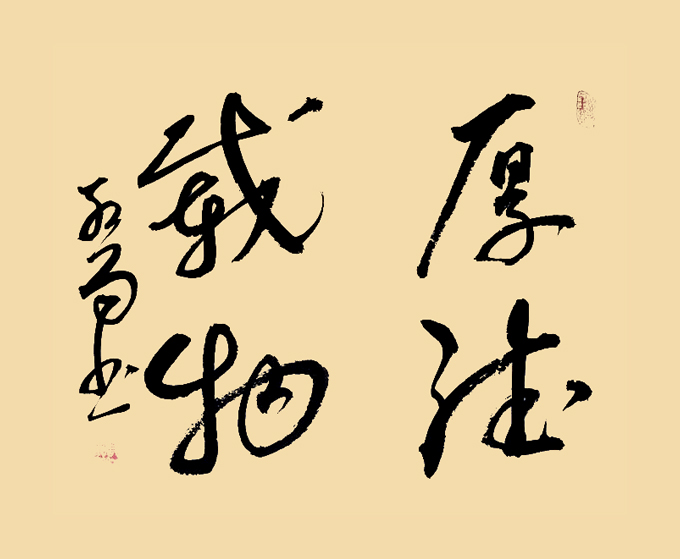 厚德
载物